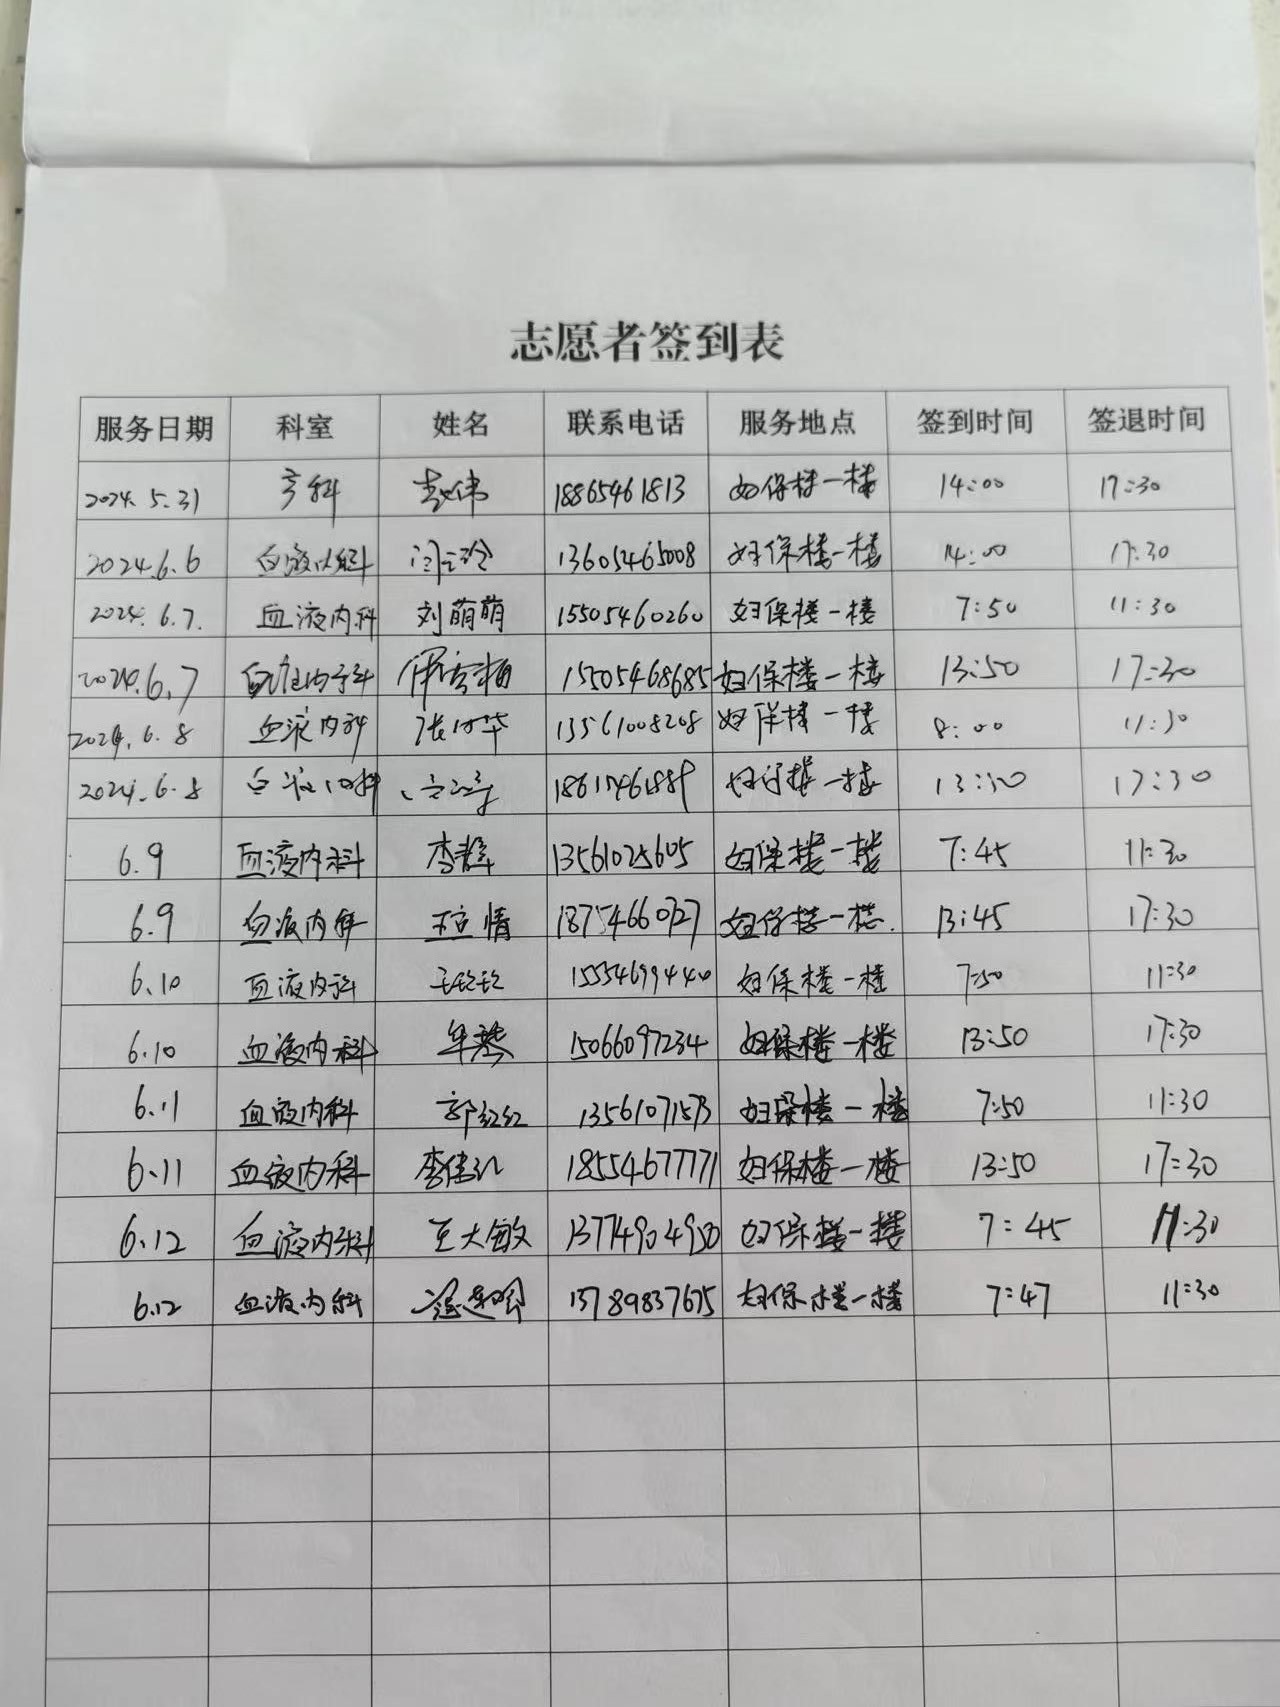 志愿者签到表
服务日期 科室 姓名 联系电话 服务地点 签到时间 签退时间
2024.5.31 产科 赵伟 18865461813 妇保楼一楼 14:00 17:30
2024.6.6 血液内科 13605465008 妇保楼一楼 14:00 17:30
2024.6.7. 血液内科 刘萌萌 15505460260 妇保楼一楼 7:50 11:30
2024.6.7 血液内科 15505468685 妇保楼一楼 13:50 17:30
2024.6.8 血液内科 13561008208 妇保楼一楼 8:00 11:30
2024.6.8 血液内科 妇保楼一楼 17:30
6.9 血液内科 李静 13561025605 妇保楼一楼 7:45 11:30
6.9 血液内科 18754660727 妇保楼一楼. 13:45 17:30
6.10 血液内科 15554699440 妇保楼一楼 7:50 11:30
6.10 血液内科 牟琴 15066097234 妇保楼一楼 13:50 17:30
6.11 血液内科 郭红红 13561071573 妇保楼一楼 7:50 11:30
6.11 血液内科 18554677771 妇保楼一楼 13:50 17:30
6.12 血液内科 王大敏 13774904950 妇保楼一楼 7:45 11:30
6.12 血液内科 13789837675 妇保楼一楼 7:47 11:30